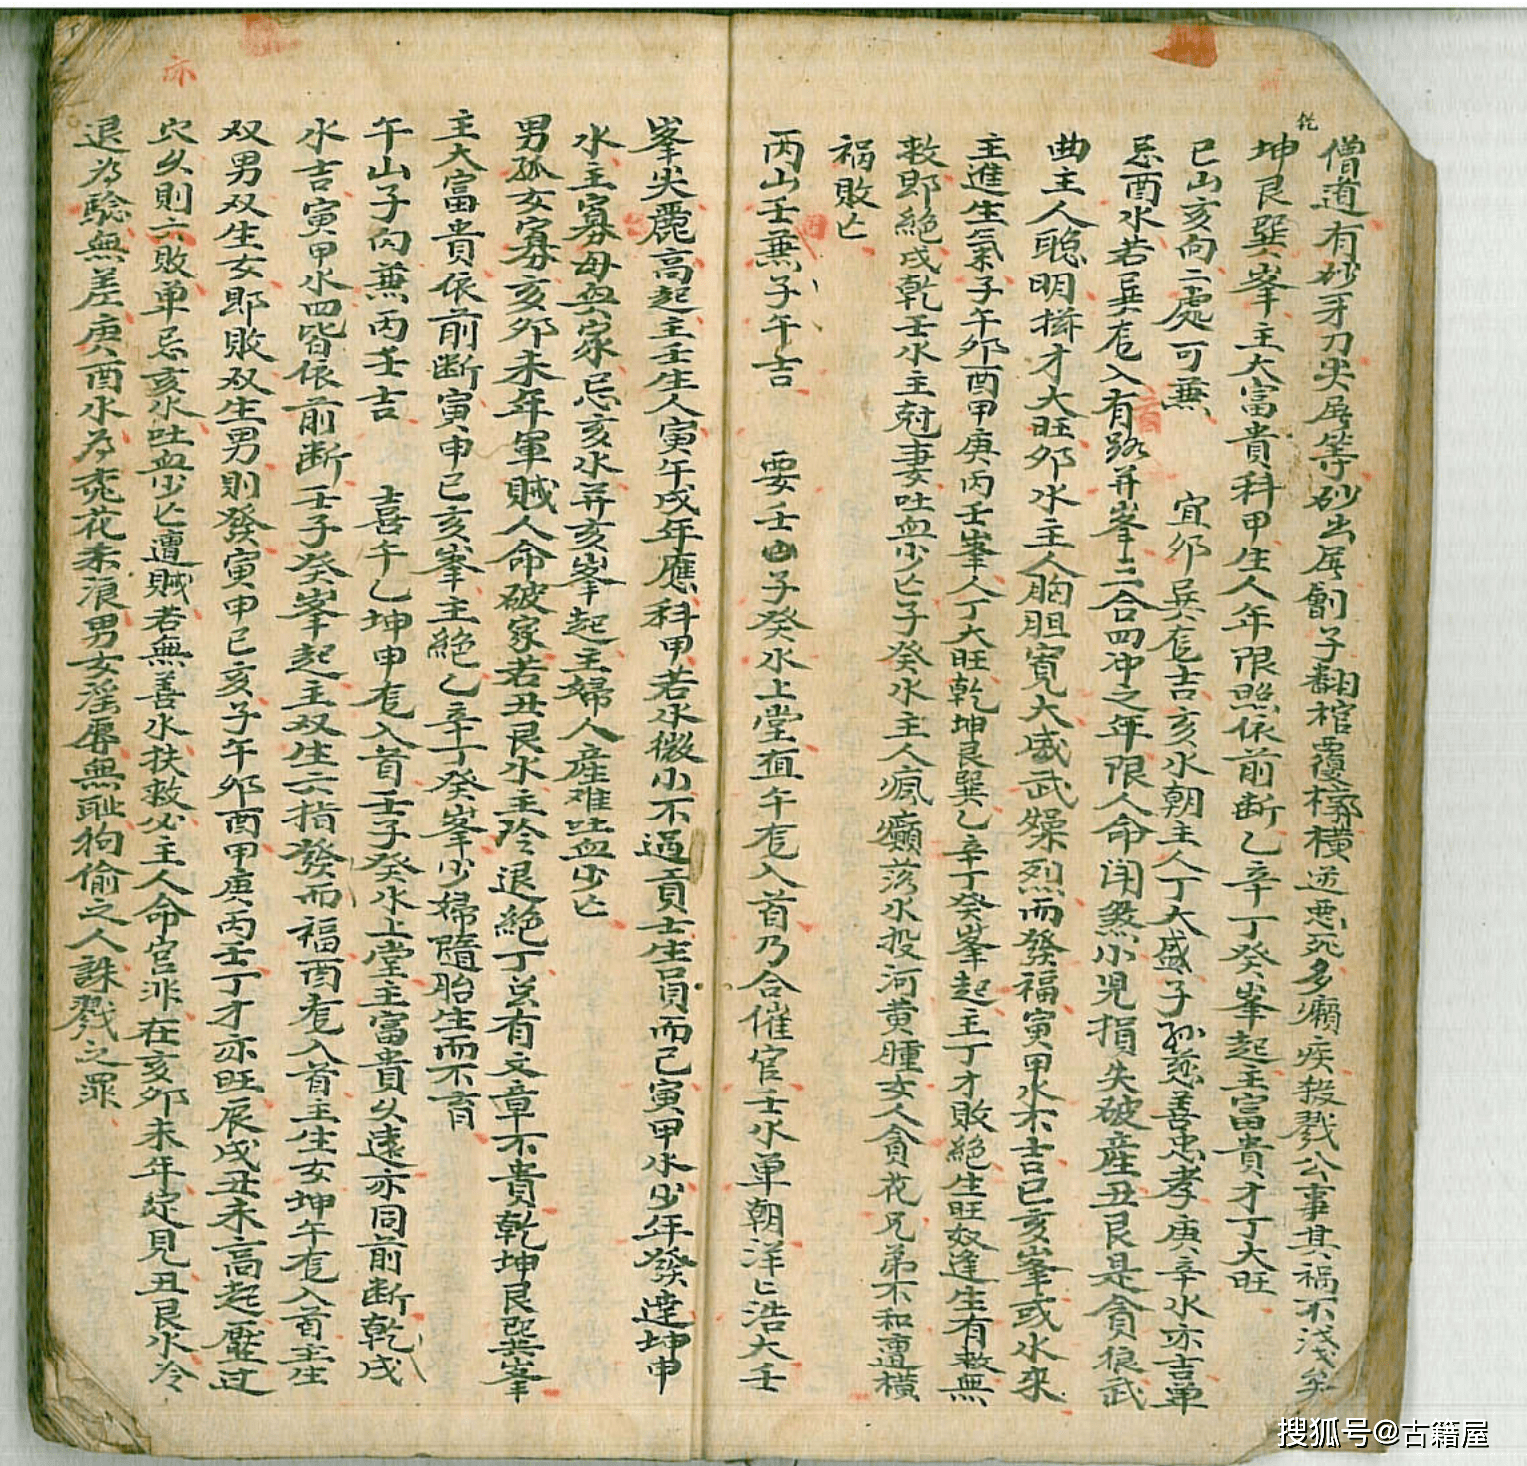 僧道有砂牙刀尖屏等砂出屏劊子翻棺覆槨橫逆惡死多癩疾殺戮公事其禍不淺矣
乾坤艮巽峯主大富貴科甲生人年限照依前断乙辛丁癸峯起主富貴才丁大旺
巳山亥向二處可兼 宜卯巽龙吉亥水朝主人丁大盛子孙慈善忠孝庚辛水亦吉单
忌酉水若巽龙入首有路并峯三合四冲之年限人命闭煞小児損失破産丑艮是貪狼武
曲主人聪明橫才大旺卯水主人胸胆寬大威武燥烈而發福寅甲水不吉巳亥峯或水来
主進生氣子午卯酉甲庚丙壬峯人丁大旺乾坤艮巽乙辛丁癸峯起主丁才敗絕生旺奴逢生有救無
救郎絕戌乾壬水主尅妻吐血少亡子癸水主人瘋癲落水投河黄腫女人貪花兄弟不和遭橫
禍敗亡
丙山壬向兼子午吉 要壬子癸水上堂直午龙入首乃合催官壬水单朝洋亡浩大壬
峯尖麗高起主壬生人寅午戌年應科甲若水微小不過貢士生員而已寅甲水少年發達坤申
水主寡母血家忌亥水并亥峯起主婦人産难吐血少亡
男孤女寡亥卯未年軍賊人命破家若丑艮水主冷退絕丁总有文章不貴乾坤艮巽峯
主大富貴依前断寅申巳亥峯主絕乙辛丁癸峯少婦隨胎生而不育
午山子向兼丙壬吉 喜午乙坤申龙入首壬子癸水上堂主富貴久遠亦同前断乾戌
水吉寅甲水四皆依前断壬子癸峯起主双生六指發而福酉龙入首主生女坤午龙入首主生
双男双生女郎敗双生男則發寅申巳亥子午卯酉甲庚丙壬丁才亦旺辰戌丑未高起壓过
穴久則亦敗单忌亥水吐血少亡遭賊若無善水扶救必主人命官非在亥卯未年定見丑艮水冷
退为騐無差庚酉水为桃花柔浪男女淫辱無耻狗偷之人誅戮之罪
搜狐号@古籍屋